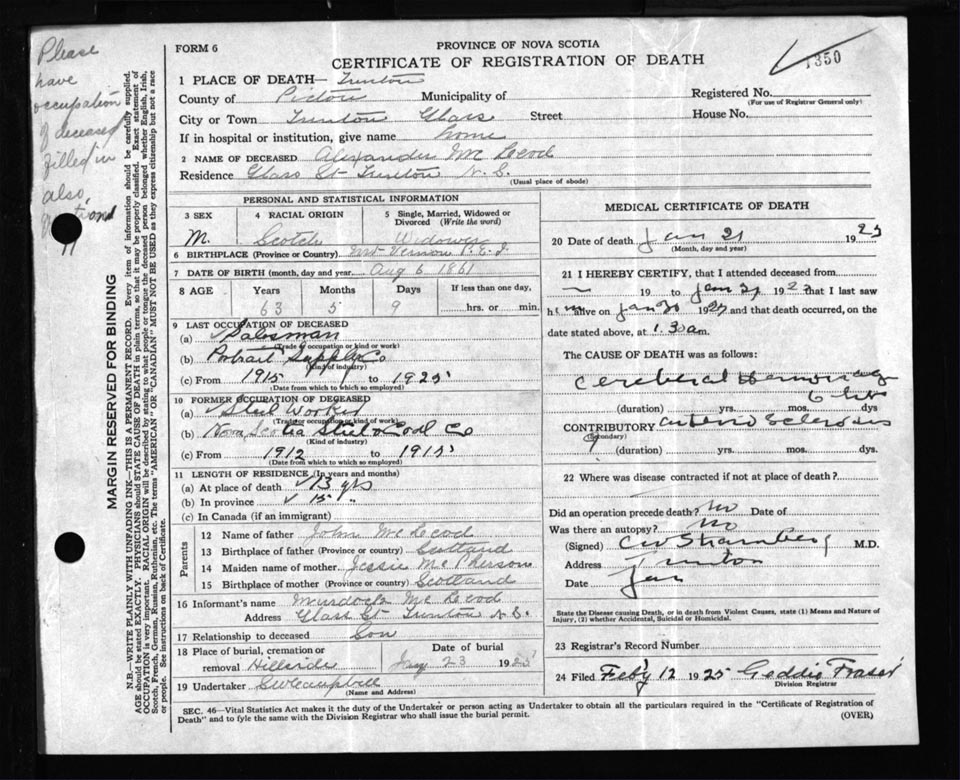 Please
have
occupation
of deceased
filled in
also
MARGIN RESERVED FOR BINDING
N.B.—WRITE PLAINLY WITH UNFADING INK—THIS IS A PERMANENT RECORD. Every item of information should be carefully supplied.
AGE should be stated EXACTLY. PHYSICIANS should STATE CAUSE OF DEATH in plain terms, so that it may be properly classified. Exact statement of
OCCUPATION is very important. RACIAL ORIGIN will be described by stating to what people or tongue the deceased person belonged whether English, Irish,
Scotch, French, German, Russian, Ruthenian, etc. The terms "AMERICAN" OR "CANADIAN" MUST NOT BE USED as they express citizenship but not a race
or people. See instructions on back of Certificate.
FORM 6
PROVINCE OF NOVA SCOTIA
CERTIFICATE OF REGISTRATION OF DEATH
1350
1 PLACE OF DEATH— Trenton
County of Pictou Municipality of
Registered No.
(For use of Registrar General only)
City or Town Trenton Glass Street
House No.
If in hospital or institution, give name home
2 NAME OF DECEASED Alexander McLeod
Residence Glass St Trenton N.S.
(Usual place of abode)
PERSONAL AND STATISTICAL INFORMATION
3 SEX
M.
4 RACIAL ORIGIN
Scotch
5 Single, Married, Widowed or
Divorced (Write the word)
Widower
6 BIRTHPLACE (Province or Country) Vernon P.E.I.
7 DATE OF BIRTH (month, day and year) Aug 6 1861
8 AGE Years Months Days If less than one day,
63 5 9 hrs. or min.
9 LAST OCCUPATION OF DECEASED
(a) Salesman
(Trade or occupation or kind or work)
(b) Portrait Supply Co
(Kind of industry)
(c) From 1915 to 1925
(Date from which to which so employed)
10 FORMER OCCUPATION OF DECEASED
(a) Steel Worker
(Trade or occupation or kind of work)
(b) Nova Scotia Steel & Coal Co
(Kind of industry)
(c) From 1912 to 1915
(Date from which to which so employed)
11 LENGTH OF RESIDENCE (In years and months)
(a) At place of death ✓ 13 yrs
(b) In province ✓ 15 "
(c) In Canada (if an immigrant)
Parents
12 Name of father John McLeod
13 Birthplace of father (Province or country) Scotland
14 Maiden name of mother Jessie McPherson
15 Birthplace of mother (Province or country) Scotland
16 Informant's name Murdock McLeod
Address Glass St Trenton N.S.
17 Relationship to deceased Son
18 Place of burial, cremation or
removal Hillside
Date of burial
Jany 23 1925
19 Undertaker SW Campbell
(Name and Address)
MEDICAL CERTIFICATE OF DEATH
20 Date of death Jan 21 1925
(Month, day and year)
21 I HEREBY CERTIFY, that I attended deceased from
— 19 to Jan 21 1925 that I last saw
him alive on Jan 20 1925 and that death occurred, on the
date stated above, at 1.30 a m.
The CAUSE OF DEATH was as follows:
Cerebral Hemorrhage
(duration) yrs. mos. dys
CONTRIBUTORY arterio Sclerosis
(Secondary)
(duration) yrs. mos. dys.
22 Where was disease contracted if not at place of death?
Did an operation precede death? No Date of
Was there an autopsy? No
(Signed) M.D.
Address Trenton
Date Jan
State the Disease causing Death, or in death from Violent Causes, state (1) Means and Nature of
Injury, (2) whether Accidental, Suicidal or Homicidal.
23 Registrar's Record Number
24 Filed Feb'y 12 1925 Geddie Fraser
Division Registrar
SEC. 46—Vital Statistics Act makes it the duty of the Undertaker or person acting as Undertaker to obtain all the particulars required in the "Certificate of Registration of
Death" and to fyle the same with the Division Registrar who shall issue the burial permit.
(OVER)